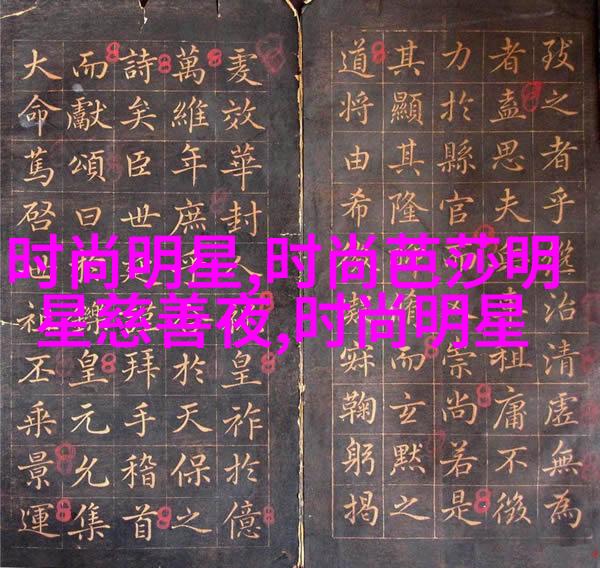 时尚明星,时尚芭莎明
星慈善夜,时尚明星
致之者乎治清虛無為
者盍思夫祖庸不徵
力於縣官崇尚若是
其顯其隆而玄默之
道將由希鞠躬揭
虔效華封人皇祚於億
萬維年庶乎於天保之
詩矣臣世拜手稽首
而獻頌曰皇元允集
大命篤啓世祖丕乘景運